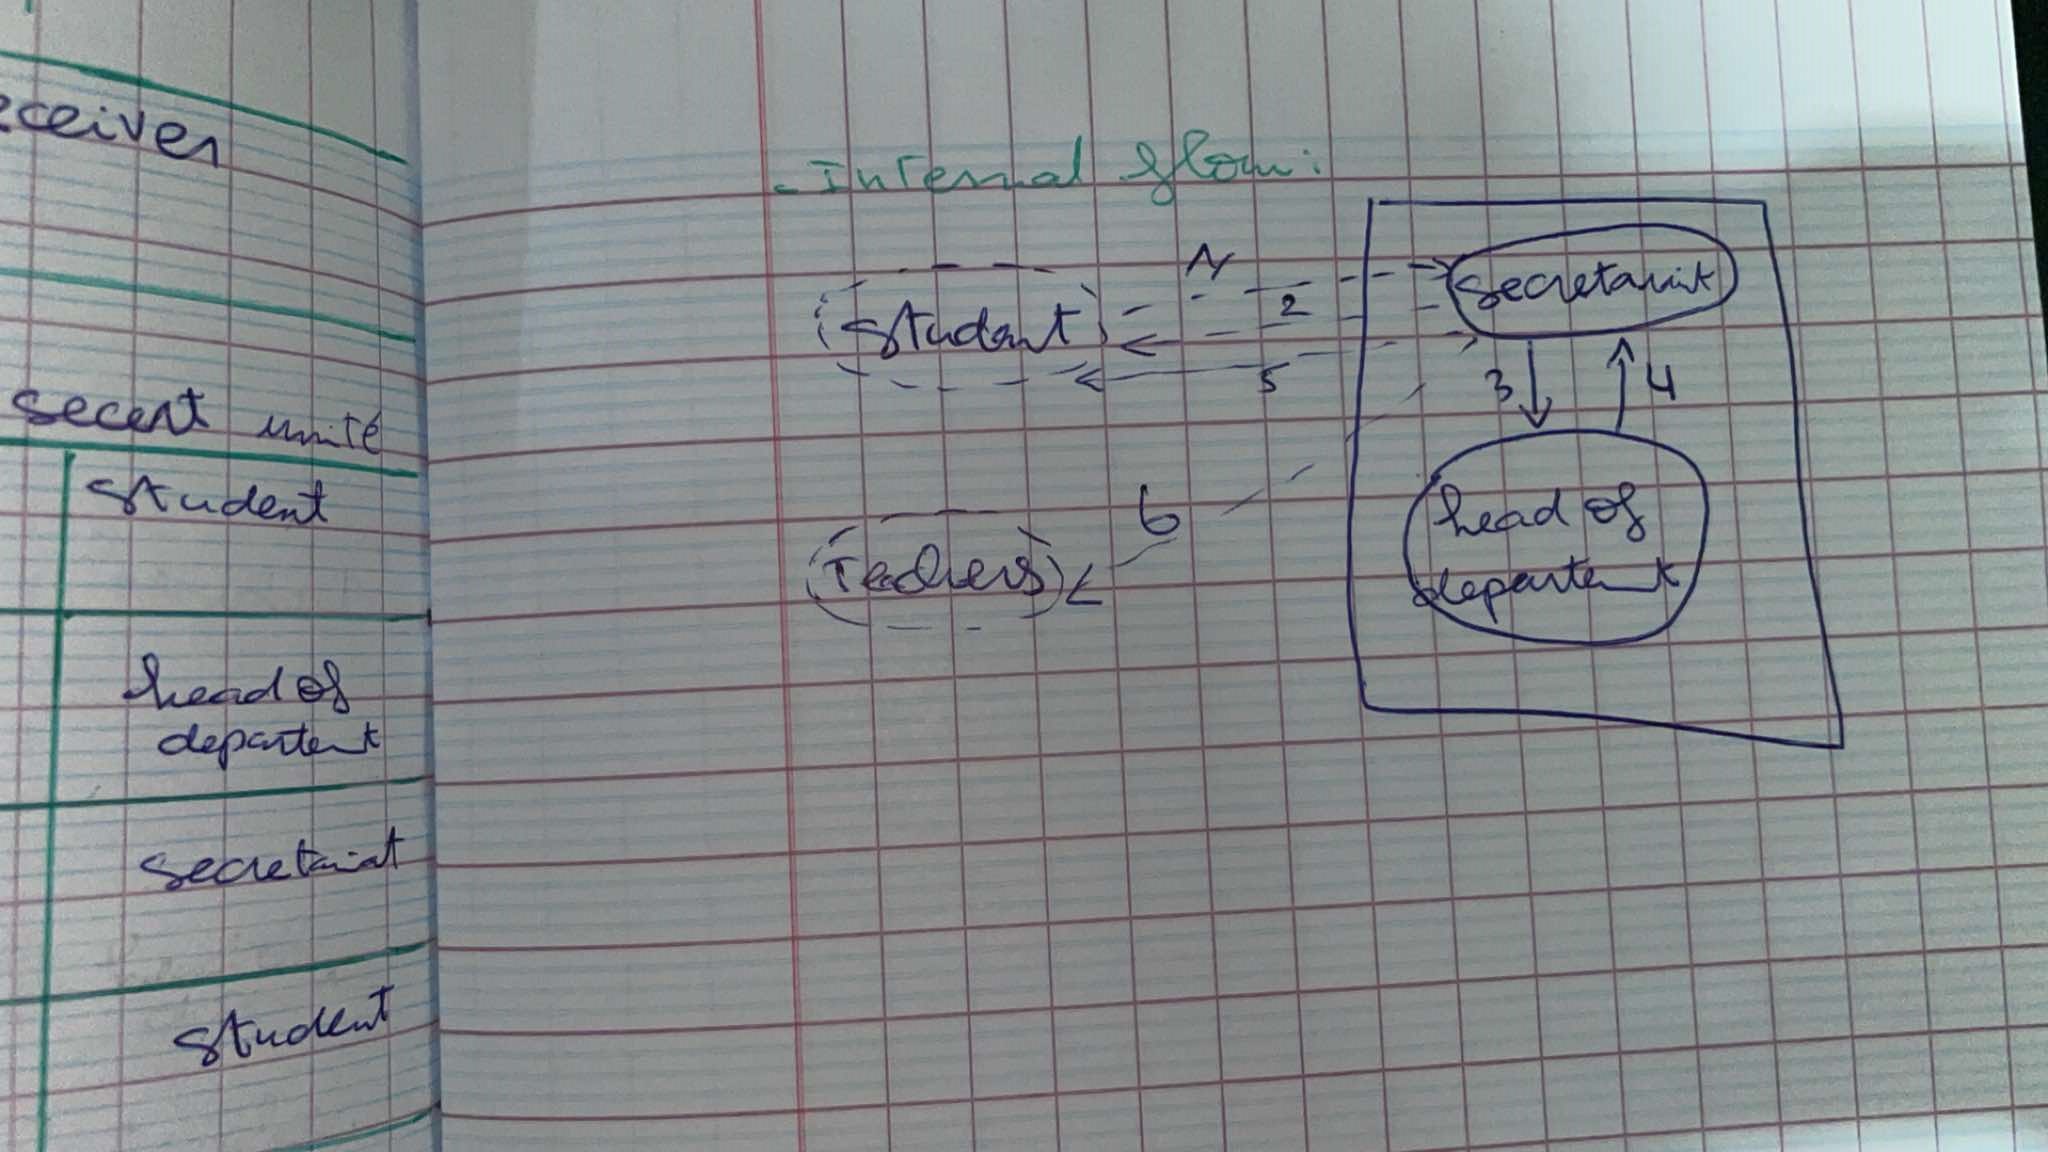 eceiver
secert unité
student
head of
departent
secretariat
student
- Internal flow:
1
secretariat
2
student
5
3
4
6
head of
departent
Teachers